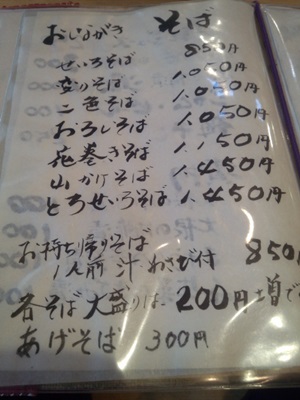 おしながき そば
せいろそば 850円
盛りそば 1,050円
二色そば 1,050円
おろしそば 1,050円
花巻きそば 1,150円
山かけそば 1,450円
とろせいろそば 1,450円
お持ち帰りそば
1人前 汁わさび付 850円
各そば大盛りは 200円増で
あげそば 300円